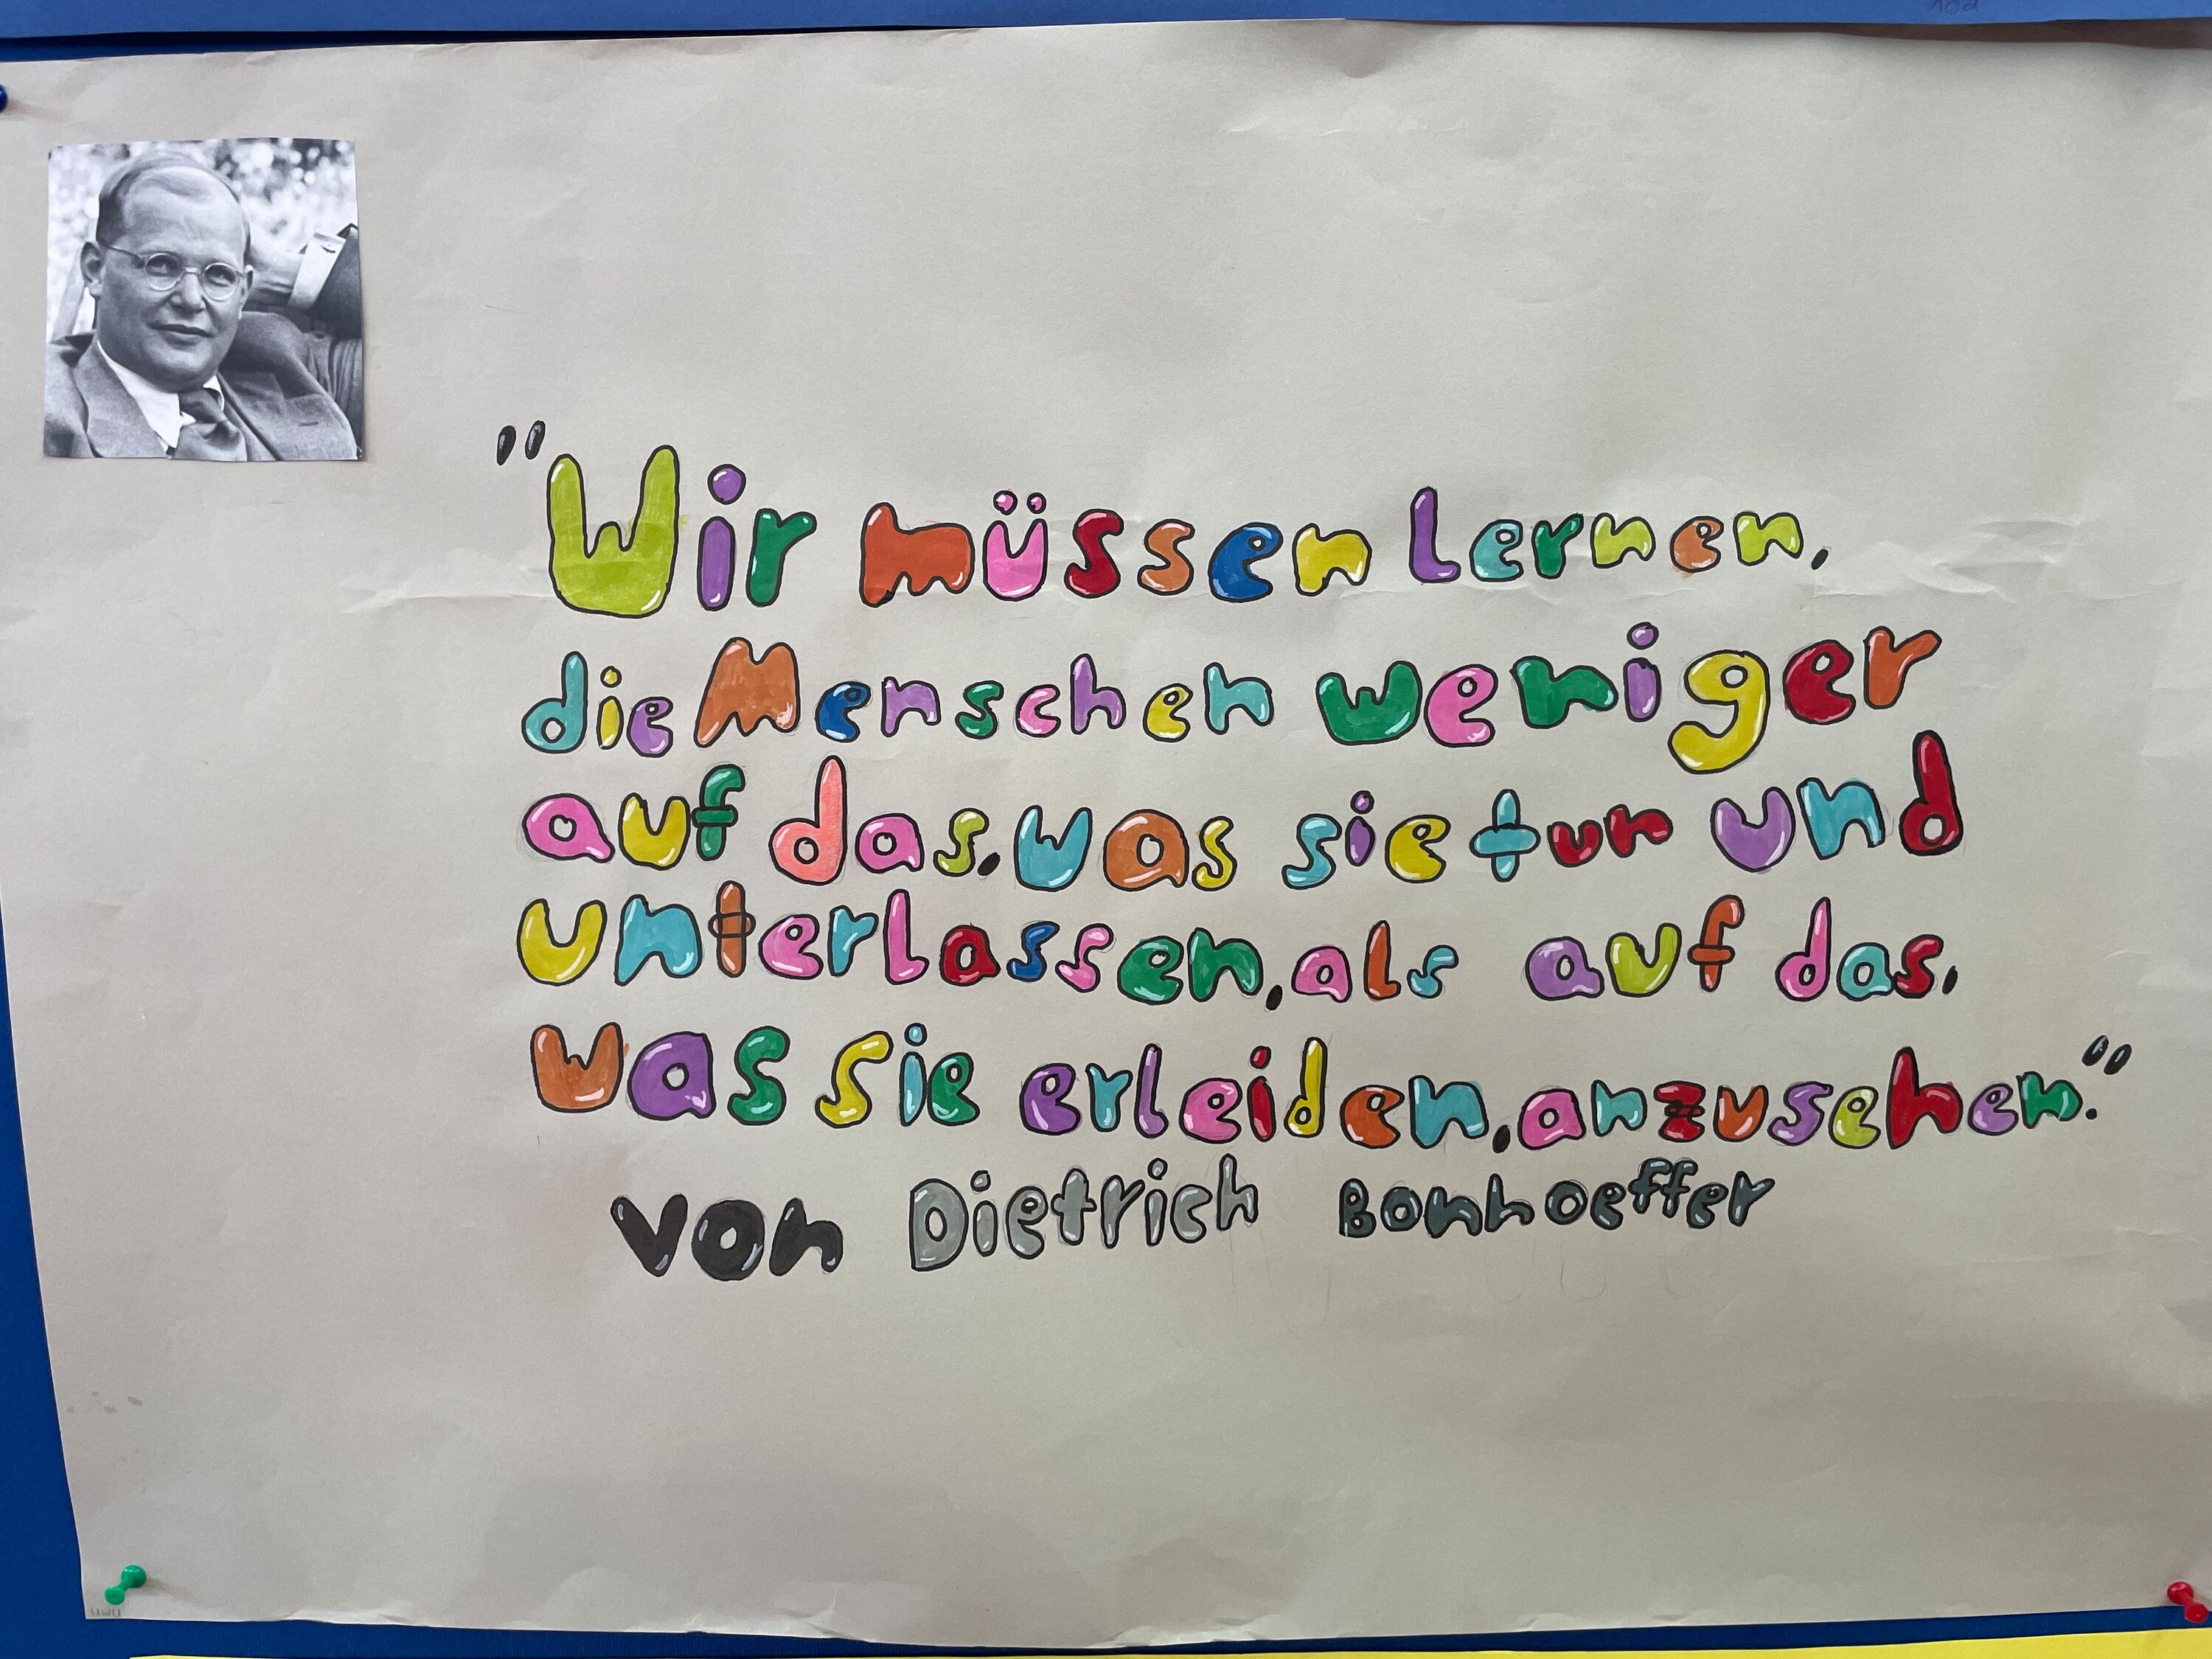 "Wir müssen lernen,
die Menschen weniger
auf das, was sie tun und
unterlassen, als auf das,
was sie erleiden, anzusehen."
von Dietrich Bonhoeffer
uwu